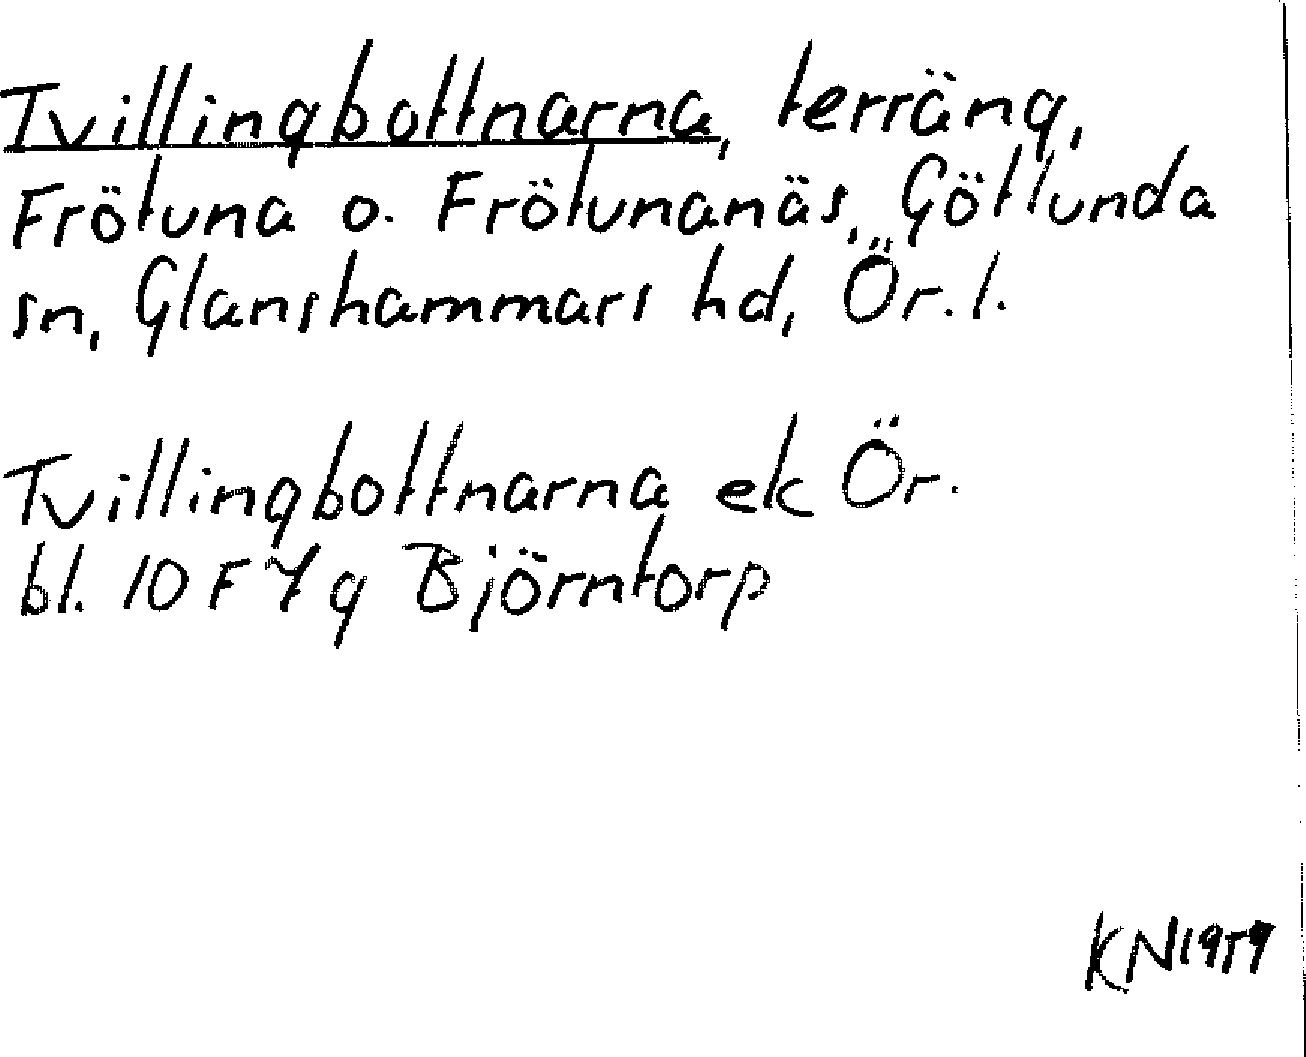 Tvillingbottnarna, terräng,
Frötuna o. Frötunanäs, Götlunda
sn, Glanshammars hd, Ör. l.
Tvillingbottnarna ek Ör.
bl. 10 F 7 g Björntorp
KN 1959